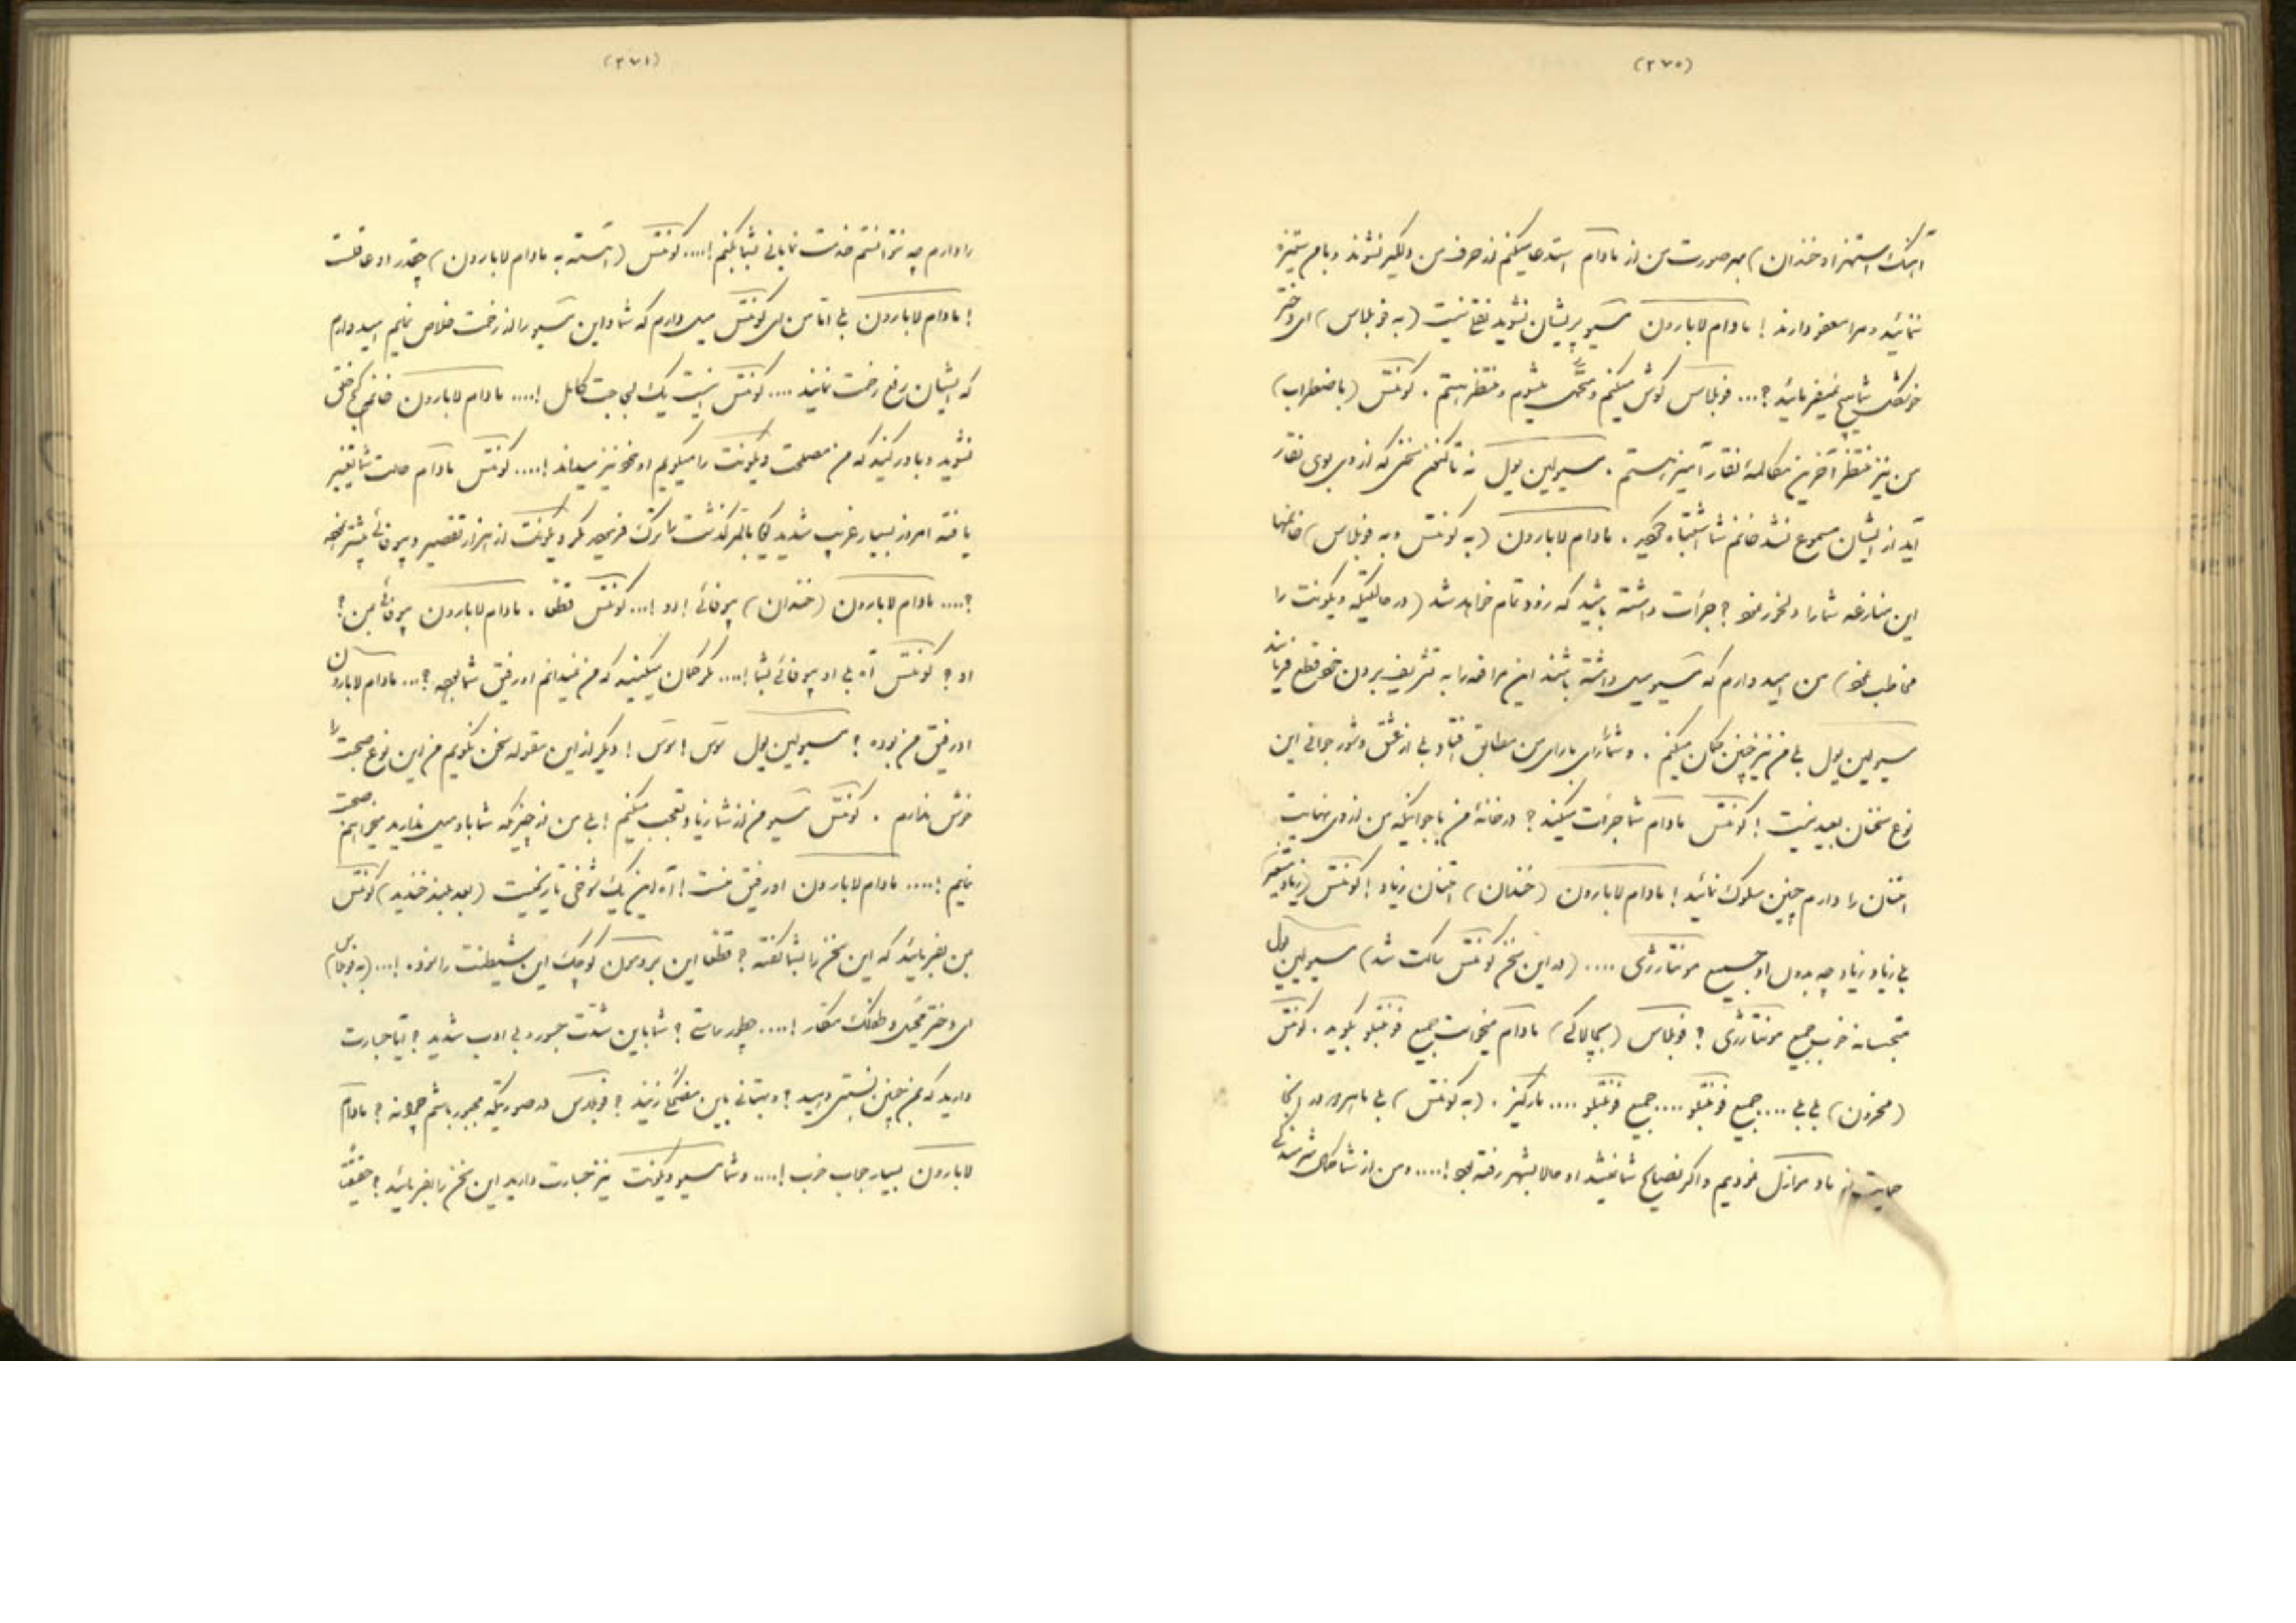 (۲۷۰)
آهنگ استهزا و خندان) بهر صورت من از مادام استدعا میکنم از حرف من دلگیر نشوند و با من ستیزه
ننمائید و مرا معفو دارند! مادام لابارون مسیو پریشان نشوید نقلی نیست (به فوبلاس) ای دختر
خوشگل شما هیچ نمیفرمائید؟... فوبلاس گوش میکنم و متحمل میشوم و منتظر هستم. کونتس (باضطراب)
من نیز منتظر آخرین مکالمهٔ نقار آمیز هستم. مسیو لین یول نه تاکنون سخنی که از وی بوی نقار
آید از ایشان مسموع نشد خانم شما اشتباه مکنید. مادام لابارون (به کونتس و به فوبلاس) خانمها
این منازعه شما را دلخور نمود؟ جرأت داشته باشید که زود تمام خواهد شد (در حالتیکه ویکونت را
مخاطب نمود) من امید دارم که مسیو میل داشته باشند این مرافعه را به تشریف بردن خود قطع فرمایند
مسیو لین یول بلی من نیز چنین گمان میکنم. و شما را رای با رای من مطابق افتاد بلی از عشق و شور جوانی این
نوع سخنان بعید نیست! کونتس مادام شما جرأت میکنید؟ در خانهٔ من با جوانیکه من از وی نهایت
امتنان را دارم چنین سلوک نمائید! مادام لابارون (خندان) امتنان زیاد! کونتس (زیاد متغیر)
بلی زیاد زیاد چه بدون او جمیع مونتارژی .... (در این سخن کونتس ساکت شد) مسیو لین یول
متجسسانه خوب جمیع مونتارژی؟ فوبلاس (بچالاکی) مادام میخواست جمیع فونتبلو بگوید. کونتس
(محزون) بلی بلی .... جمیع فونتبلو .... جمیع فونتبلو .... مارکیز. (به کونتس) بلی ما امروز در اینجا
حمایت از مادموازل نمودیم و اگر نصایح شما نمیشد او حالا بشهر رفته بود! .... و من از شما کمال شرمندگی
(۲۷۱)
را دارم چه نتوانستم خدمت نمایانی بشما بکنم! .... کونتس (آهسته به مادام لابارون) چقدر او عاقلست
! مادام لابارون بلی اما من ای کونتس میل دارم که شما و این مسیو را از زحمت خلاص نمایم امید دارم
که ایشان رفع زحمت نمایند .... کونتس اینست یک لجاجت کامل! .... مادام لابارون خانم کج خلق
نشوید و باور کنید که من مصلحت ویکونت را میگویم او خود نیز میداند! .... کونتس مادام حالت شما تغییر
یافته امروز بسیار غریب شدید گویا بالمره گذشت را ترک فرموده مگر ویکونت از ابراز تقصیر و بیوفائی بیشتر نموده
؟ .... مادام لابارون (خندان) بیوفائی! او! ... کونتس قطعا. مادام لابارون بیوفائی بمن؟
او؟ کونتس آه بلی او بیوفائی بشما! .... مگر گمان میکنید که من نمیدانم او رفیق شما بوده؟ ... مادام لابارون
او رفیق من بوده؟ مسیو لین یول سوس! سوس! دیگر از این مقوله سخن نگویم من این نوع صحبت را
خوش ندارم. کونتس مسیو من از شما زیاد تعجب میکنم! بلی من از چیزیکه شما باو میل ندارید میخواهم صحبت
نمایم! .... مادام لابارون او رفیق منست! آه این یک شوخی تاریخیست (بعد بلند خندید) کونتس
بمن بفرمائید که این سخن را بشما گفته؟ قطعا این برومون کوچک این شیطنت را نموده! ... (به فوبلاس)
ای دختر محیل و طفلک مکار! .... چطور راستی؟ شما باین شدت جسور و بی ادب شدید؟ آیا جسارت
دارید که بمن چنین نسبتی دهید؟ و بهتانی باین مضحکی زنید؟ فوبلاس در صورتیکه مجبور باشم چرا نه؟ مادام
لابارون بسیار جواب خوب! .... و شما مسیو ویکونت نیز جسارت دارید این سخن را بفرمائید؟ حقیقتاً